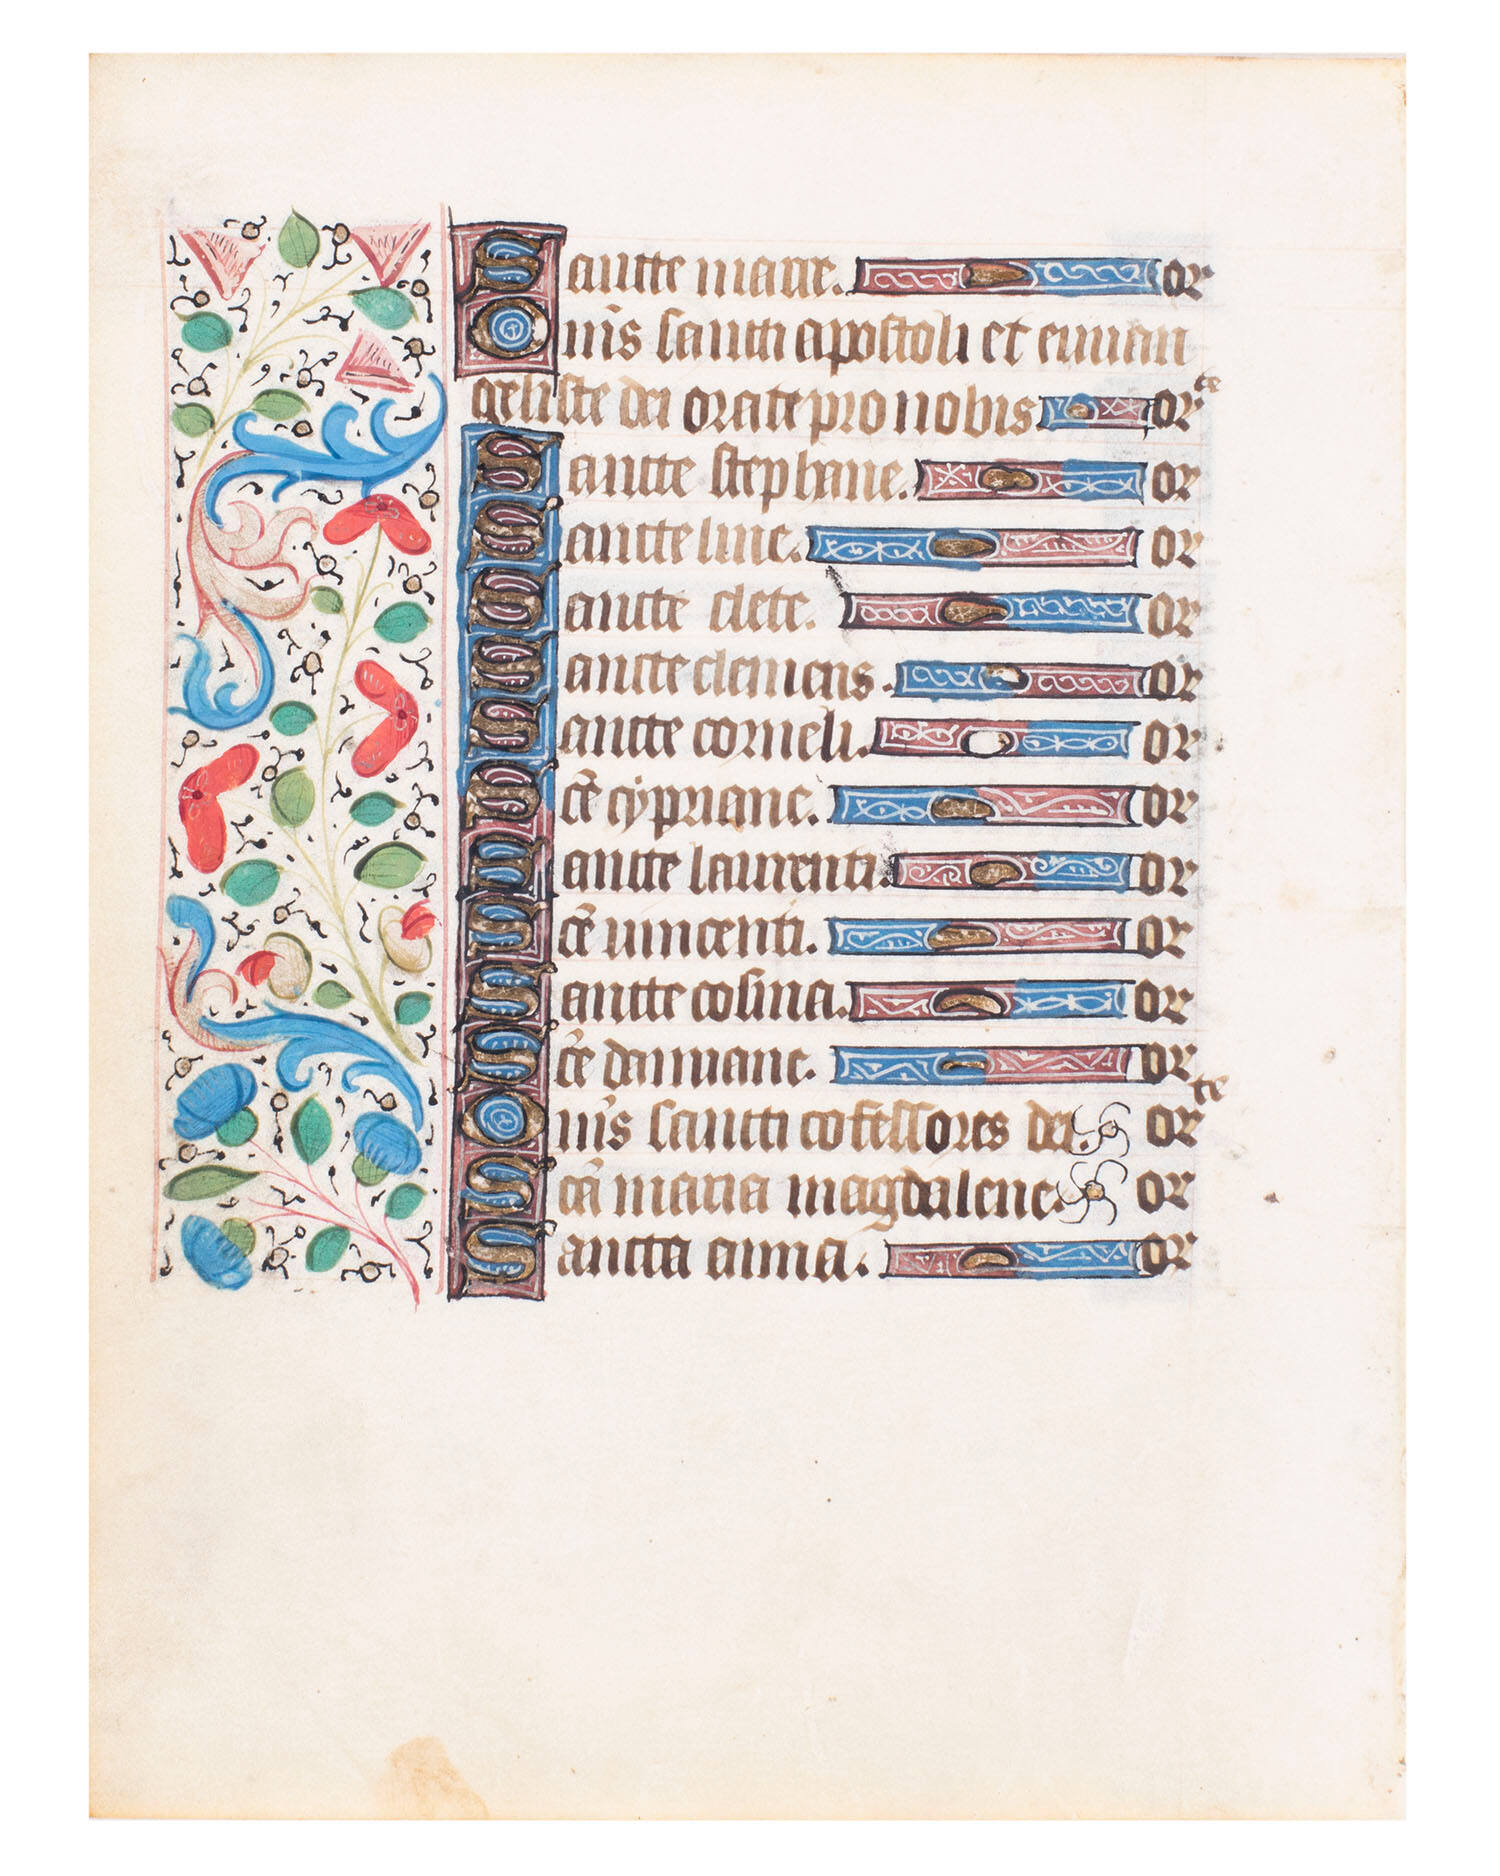 Sancte marce. or
Om̄s sancti apostoli et euuan
geliste dei orate pro nobis or te
Sancte stephane. or
Sancte line. or
Sancte clete. or
Sancte clemens. or
Sancte corneli. or
Sc̄e cypriane. or
Sancte laurenti. or
Sc̄e vincenti. or
Sancte cosma. or
Sc̄e damiane. or
Om̄s sancti cofessores dei. or te
Sc̄a maria magdalene. or
Sancta anna. or